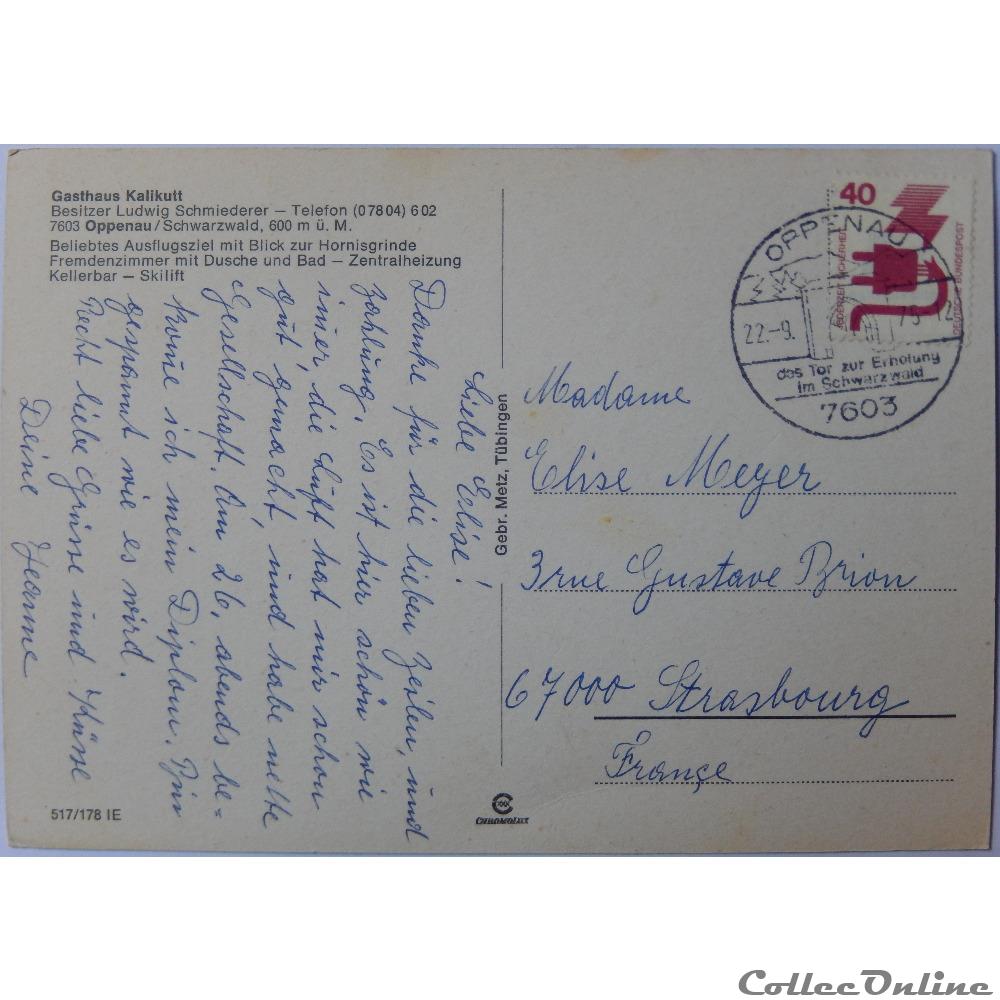 Gasthaus Kalikutt
Besitzer Ludwig Schmiederer – Telefon (07804) 602
7603 Oppenau/Schwarzwald, 600 m ü. M.
Beliebtes Ausflugsziel mit Blick zur Hornisgrinde
Fremdenzimmer mit Dusche und Bad – Zentralheizung
Kellerbar – Skilift
Liebe Elise!
Danke für die lieben Zeilen, und
zahlung. Es ist hier schön wie
imer, die Luft hat mir schon
gut gemacht, und habe nette
Gesellschaft. Am 26, abends be=
kome ich mein Diplom. Bin
gespannt wie es wird.
Recht liebe Grüsse und Küsse
Deine Jeanne
517/178 IE
Gebr. Metz, Tübingen
CHROMOLUX
40
JEDERZEIT SICHERHEIT
DEUTSCHE BUNDESPOST
OPPENAU
22.-9. 75-12
das Tor zur Erholung
im Schwarzwald
7603
Madame
Elise Meyer
3 rue Gustave Brion
67000 Strasbourg
Françe
CollecOnline